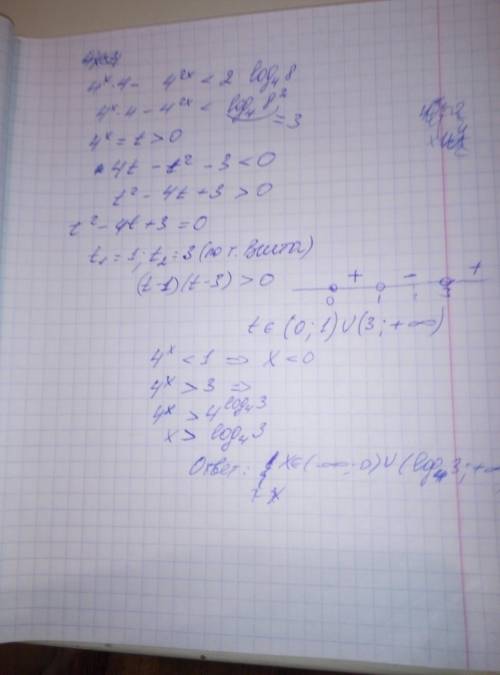 4ˣ·4 - 4²ˣ < 2 log₄8
4ˣ·4 - 4²ˣ < log₄8²
= 3
4ˣ = t > 0
4t - t² - 3 < 0
t² - 4t + 3 > 0
t² - 4t + 3 = 0
t₁ = 1; t₂ = 3 (по т. Виета)
(t-1)(t-3) > 0
+ - +
0 1 3
t ∈ (0; 1) ∪ (3; +∞)
4ˣ < 1 ⇒ x < 0
4ˣ > 3 ⇒
4ˣ > 4^log₄3
x > log₄3
Ответ: x ∈ (-∞; 0) ∪ (log₄3; +∞